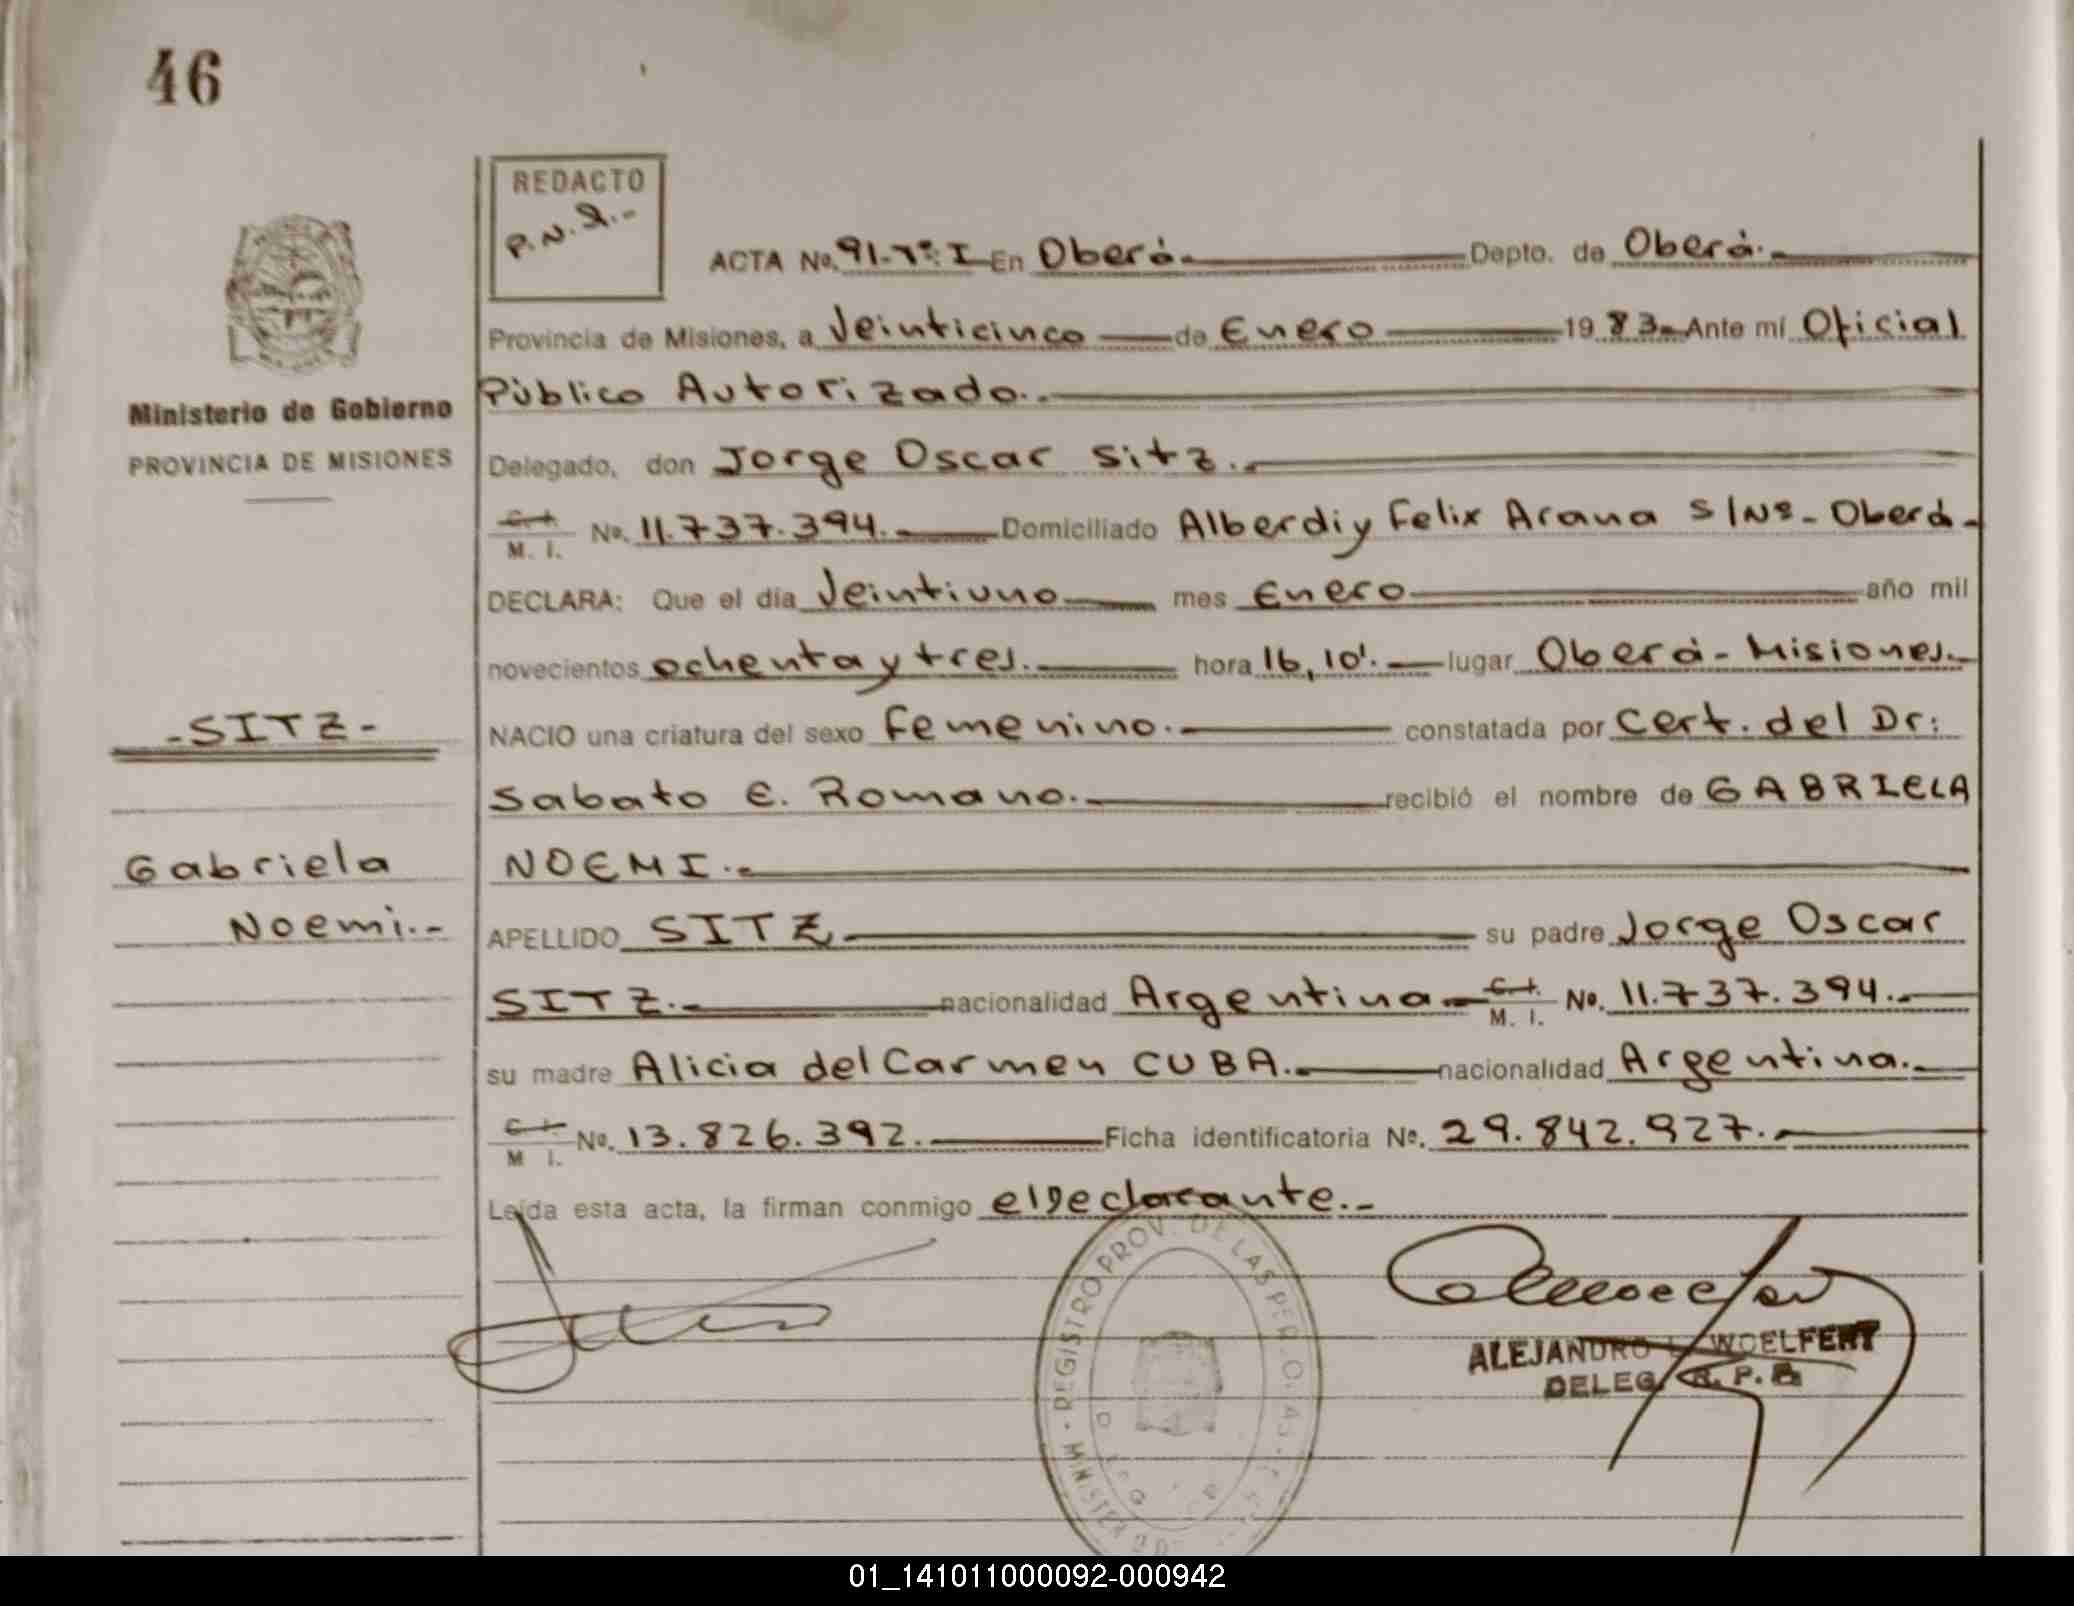 46
REDACTO
P.N.R.-
ACTA No. 91-Tº: I En Oberá. Depto. de Oberá.
Provincia de Misiones, a Veinticinco de Enero 1983. Ante mí Oficial
Ministerio de Gobierno
PROVINCIA DE MISIONES
Público Autorizado.
Delegado, don Jorge Oscar Sitz.
C. I. M. I. No. 11.737.394. Domiciliado Alberdi y Felix Arana S/Nº- Oberá-
DECLARA: Que el día Veintiuno mes Enero año mil
novecientos ochenta y tres. hora 16,10'. lugar Oberá- Misiones.
-SITZ-
NACIO una criatura del sexo Femenino. constatada por Cert. del Dr:
Sabato E. Romano. recibió el nombre de GABRIELA
Gabriela
NOEMI.
Noemi.-
APELLIDO SITZ su padre Jorge Oscar
SITZ. nacionalidad Argentina C. I. M. I. No. 11.737.394.
su madre Alicia del Carmen CUBA. nacionalidad Argentina.
C. I. M I. No. 13.826.392. Ficha identificatoria No. 29.842.927.
Leída esta acta, la firman conmigo el Declarante.-
REGISTRO PROV. DE LAS PERSONAS
ALEJANDRO WOELFERT
DELEG. R. P.
01_141011000092-000942